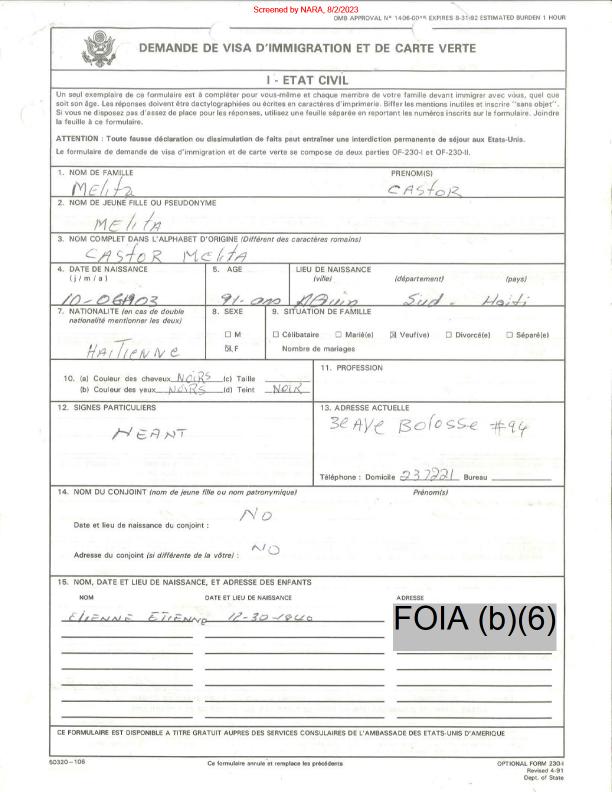 Screened by NARA, 8/2/2023
OMB APPROVAL N° 1406-0015 EXPIRES 8-31-92 ESTIMATED BURDEN 1 HOUR
DEMANDE DE VISA D'IMMIGRATION ET DE CARTE VERTE
I - ETAT CIVIL
Un seul exemplaire de ce formulaire est à compléter pour vous-même et chaque membre de votre famille devant immigrer avec vous, quel que
soit son âge. Les réponses doivent être dactylographiées ou écrites en caractères d'imprimerie. Biffer les mentions inutiles et inscrire "sans objet".
Si vous ne disposez pas d'assez de place pour les réponses, utilisez une feuille séparée en reportant les numéros inscrits sur le formulaire. Joindre
la feuille à ce formulaire.
ATTENTION : Toute fausse déclaration ou dissimulation de faits peut entraîner une interdiction permanente de séjour aux Etats-Unis.
Le formulaire de demande de visa d'immigration et de carte verte se compose de deux parties OF-230-I et OF-230-II.
1. NOM DE FAMILLE PRENOM(S)
MELITA CASTOR
2. NOM DE JEUNE FILLE OU PSEUDONYME
MELITA
3. NOM COMPLET DANS L'ALPHABET D'ORIGINE (Différent des caractères romains)
CASTOR MELITA
4. DATE DE NAISSANCE 5. AGE LIEU DE NAISSANCE
(j / m / a) (ville) (département) (pays)
91-ans AQuin Sud - Haiti
7. NATIONALITE (en cas de double 8. SEXE 9. SITUATION DE FAMILLE
nationalité mentionner les deux)
☐ M ☐ Célibataire ☐ Marié(e) ☒ Veuf(ive) ☐ Divorcé(e) ☐ Séparé(e)
HAITIENNE ☒ F Nombre de mariages
10. (a) Couleur des cheveux NOIRS (c) Taille 11. PROFESSION
(b) Couleur des yeux NOIRS (d) Teint NOIR
12. SIGNES PARTICULIERS 13. ADRESSE ACTUELLE
NEANT 3e AVE BOLOSSE #94
Téléphone : Domicile 237221 Bureau
14. NOM DU CONJOINT (nom de jeune fille ou nom patronymique) Prénom(s)
NO
Date et lieu de naissance du conjoint :
Adresse du conjoint (si différente de la vôtre) : NO
15. NOM, DATE ET LIEU DE NAISSANCE, ET ADRESSE DES ENFANTS
NOM DATE ET LIEU DE NAISSANCE ADRESSE
ETIENNE ETIENNE 12-30-1940 FOIA (b)(6)
CE FORMULAIRE EST DISPONIBLE A TITRE GRATUIT AUPRES DES SERVICES CONSULAIRES DE L'AMBASSADE DES ETATS-UNIS D'AMERIQUE
50320-106 Ce formulaire annule et remplace les précédents OPTIONAL FORM 230-I
Revised 4-91
Dept. of State